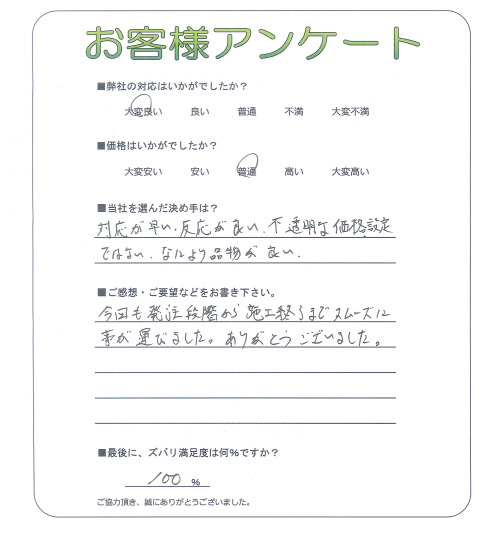 お客様アンケート
■弊社の対応はいかがでしたか？
大変良い 良い 普通 不満 大変不満
■価格はいかがでしたか？
大変安い 安い 普通 高い 大変高い
■当社を選んだ決め手は？
対応が早い、反応が良い、不透明な価格設定
ではない、なにより品物が良い、
■ご感想・ご要望などをお書き下さい。
今回も発注段階から施工終了までスムーズに
事が運びました。ありがとうございました。
■最後に、ズバリ満足度は何%ですか？
100 %
ご協力頂き、誠にありがとうございました。